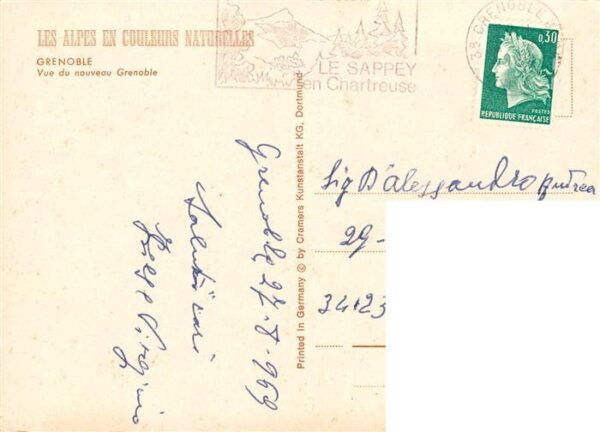 LES ALPES EN COULEURS NATURELLES
GRENOBLE
Vue du nouveau Grenoble
LE SAPPEY
en Chartreuse
38 GRENOBLE
0,30
POSTES
REPUBLIQUE FRANÇAISE
Printed in Germany © by Cramers Kunstanstalt KG, Dortmund
Grenoble 27-8-969
Saluti cari
Virginio
Sig D'Alessandro Andrea
29-
34123